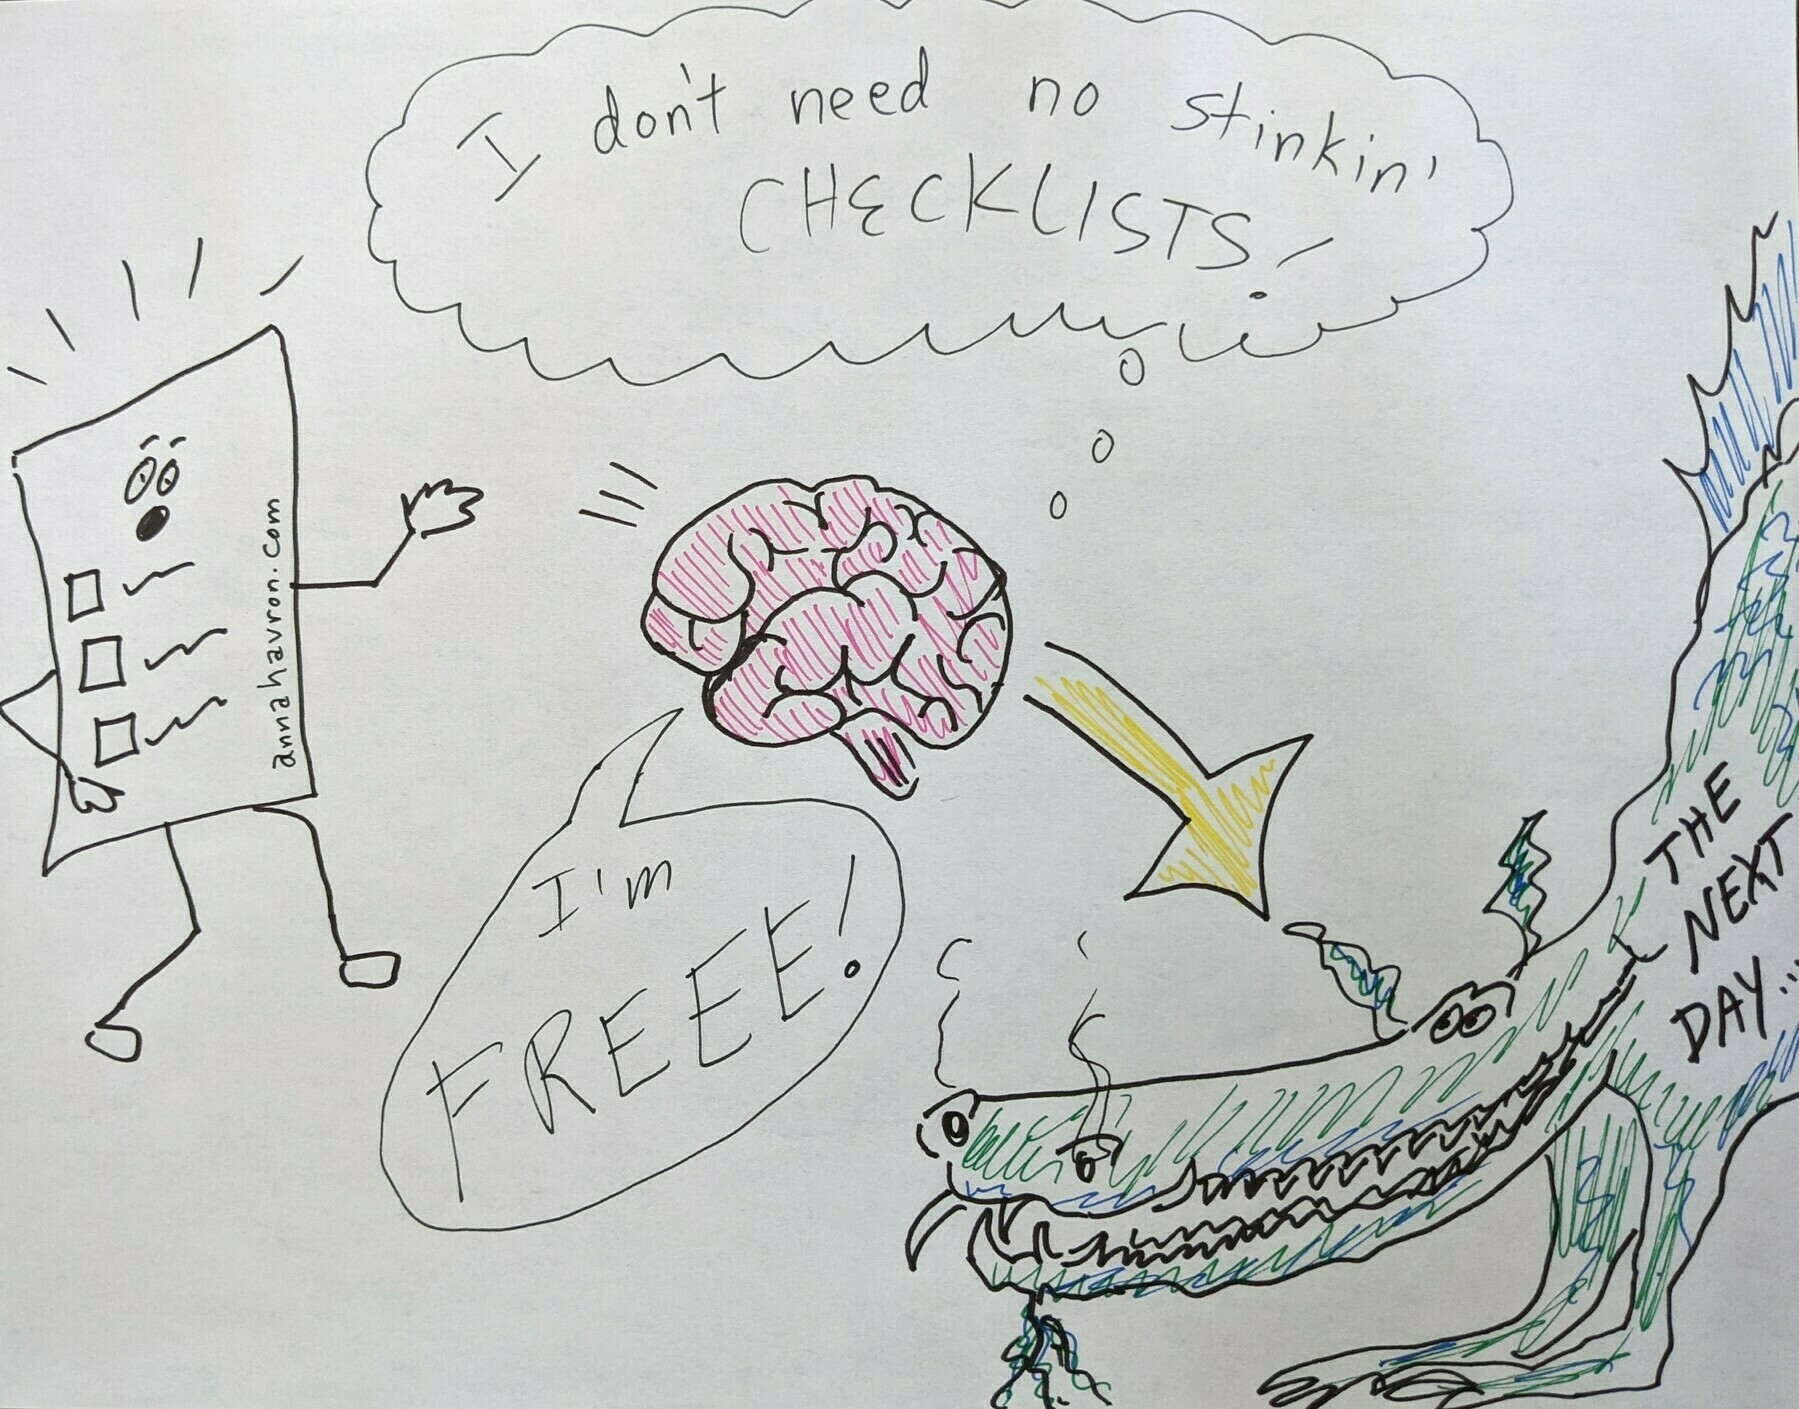 I don't need no stinkin'
CHECKLISTS!
annahavron.com
I'm
FREEE!
THE
NEXT
DAY...